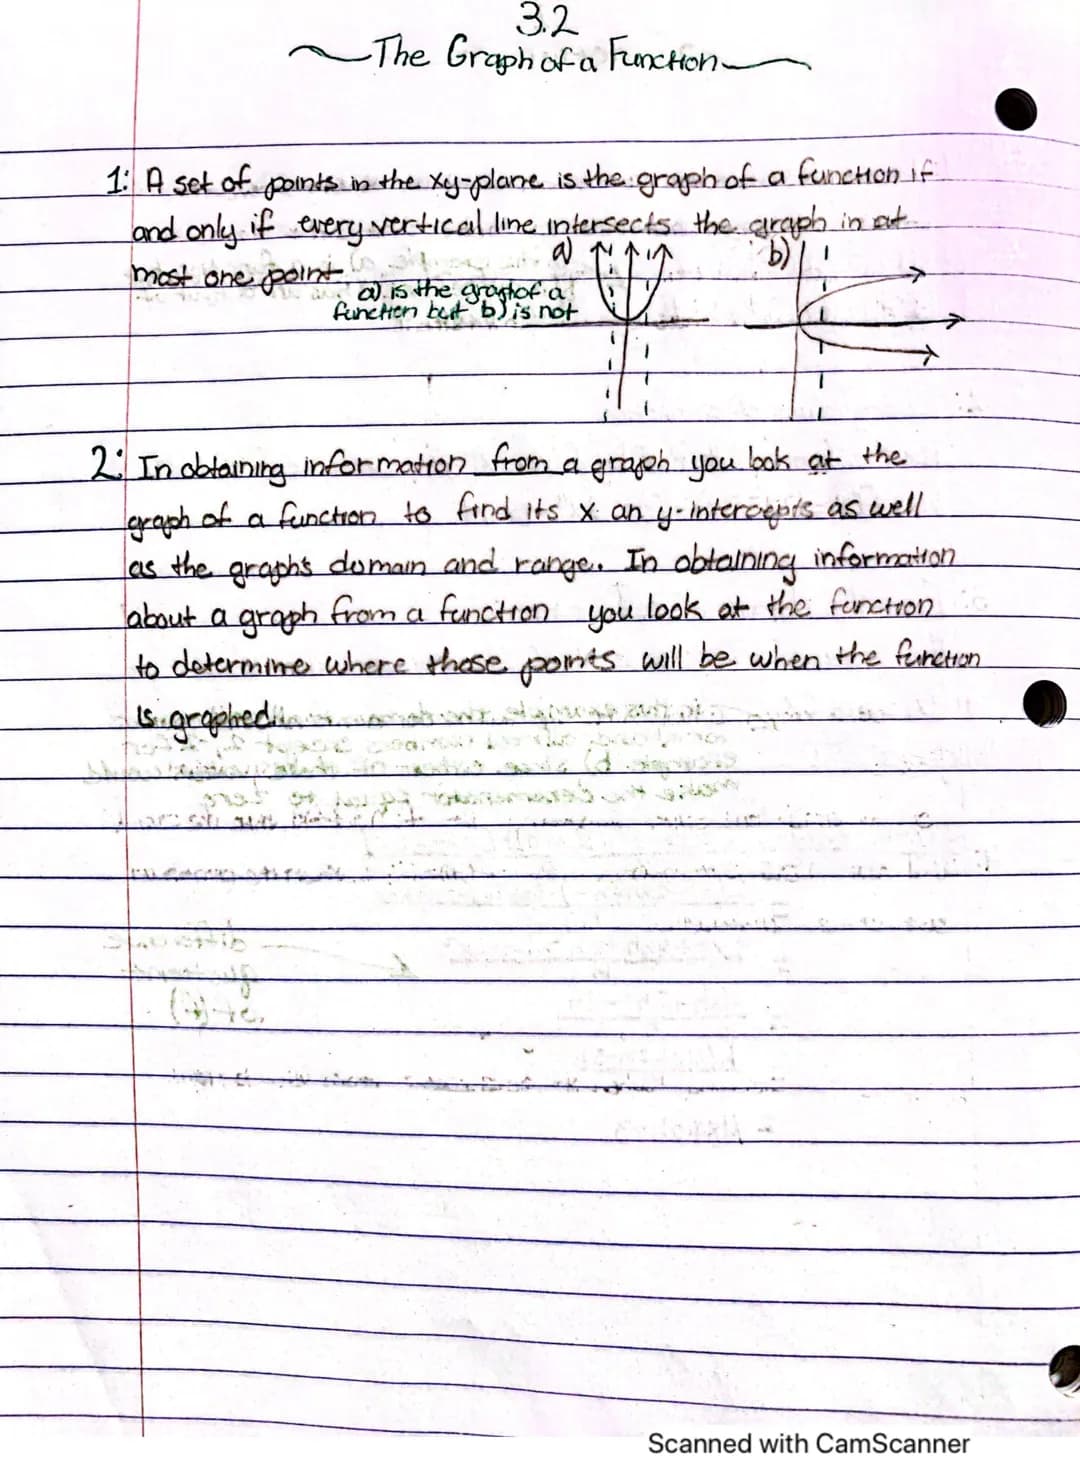 3.2
The Graph of a Function
1: A set of points in the xy-plane is the graph of a function if
and only if every vertical line intersects the graph in at
most one point
a) b)
a) is the graph of a
function but b) is not
2: In obtaining information from a graph you look at the
graph of a function to find its x an y-intercepts as well
as the graph's domain and range. In obtaining information
about a graph from a function you look at the function
to determine where those points will be when the function
is graphed.
Scanned with CamScanner